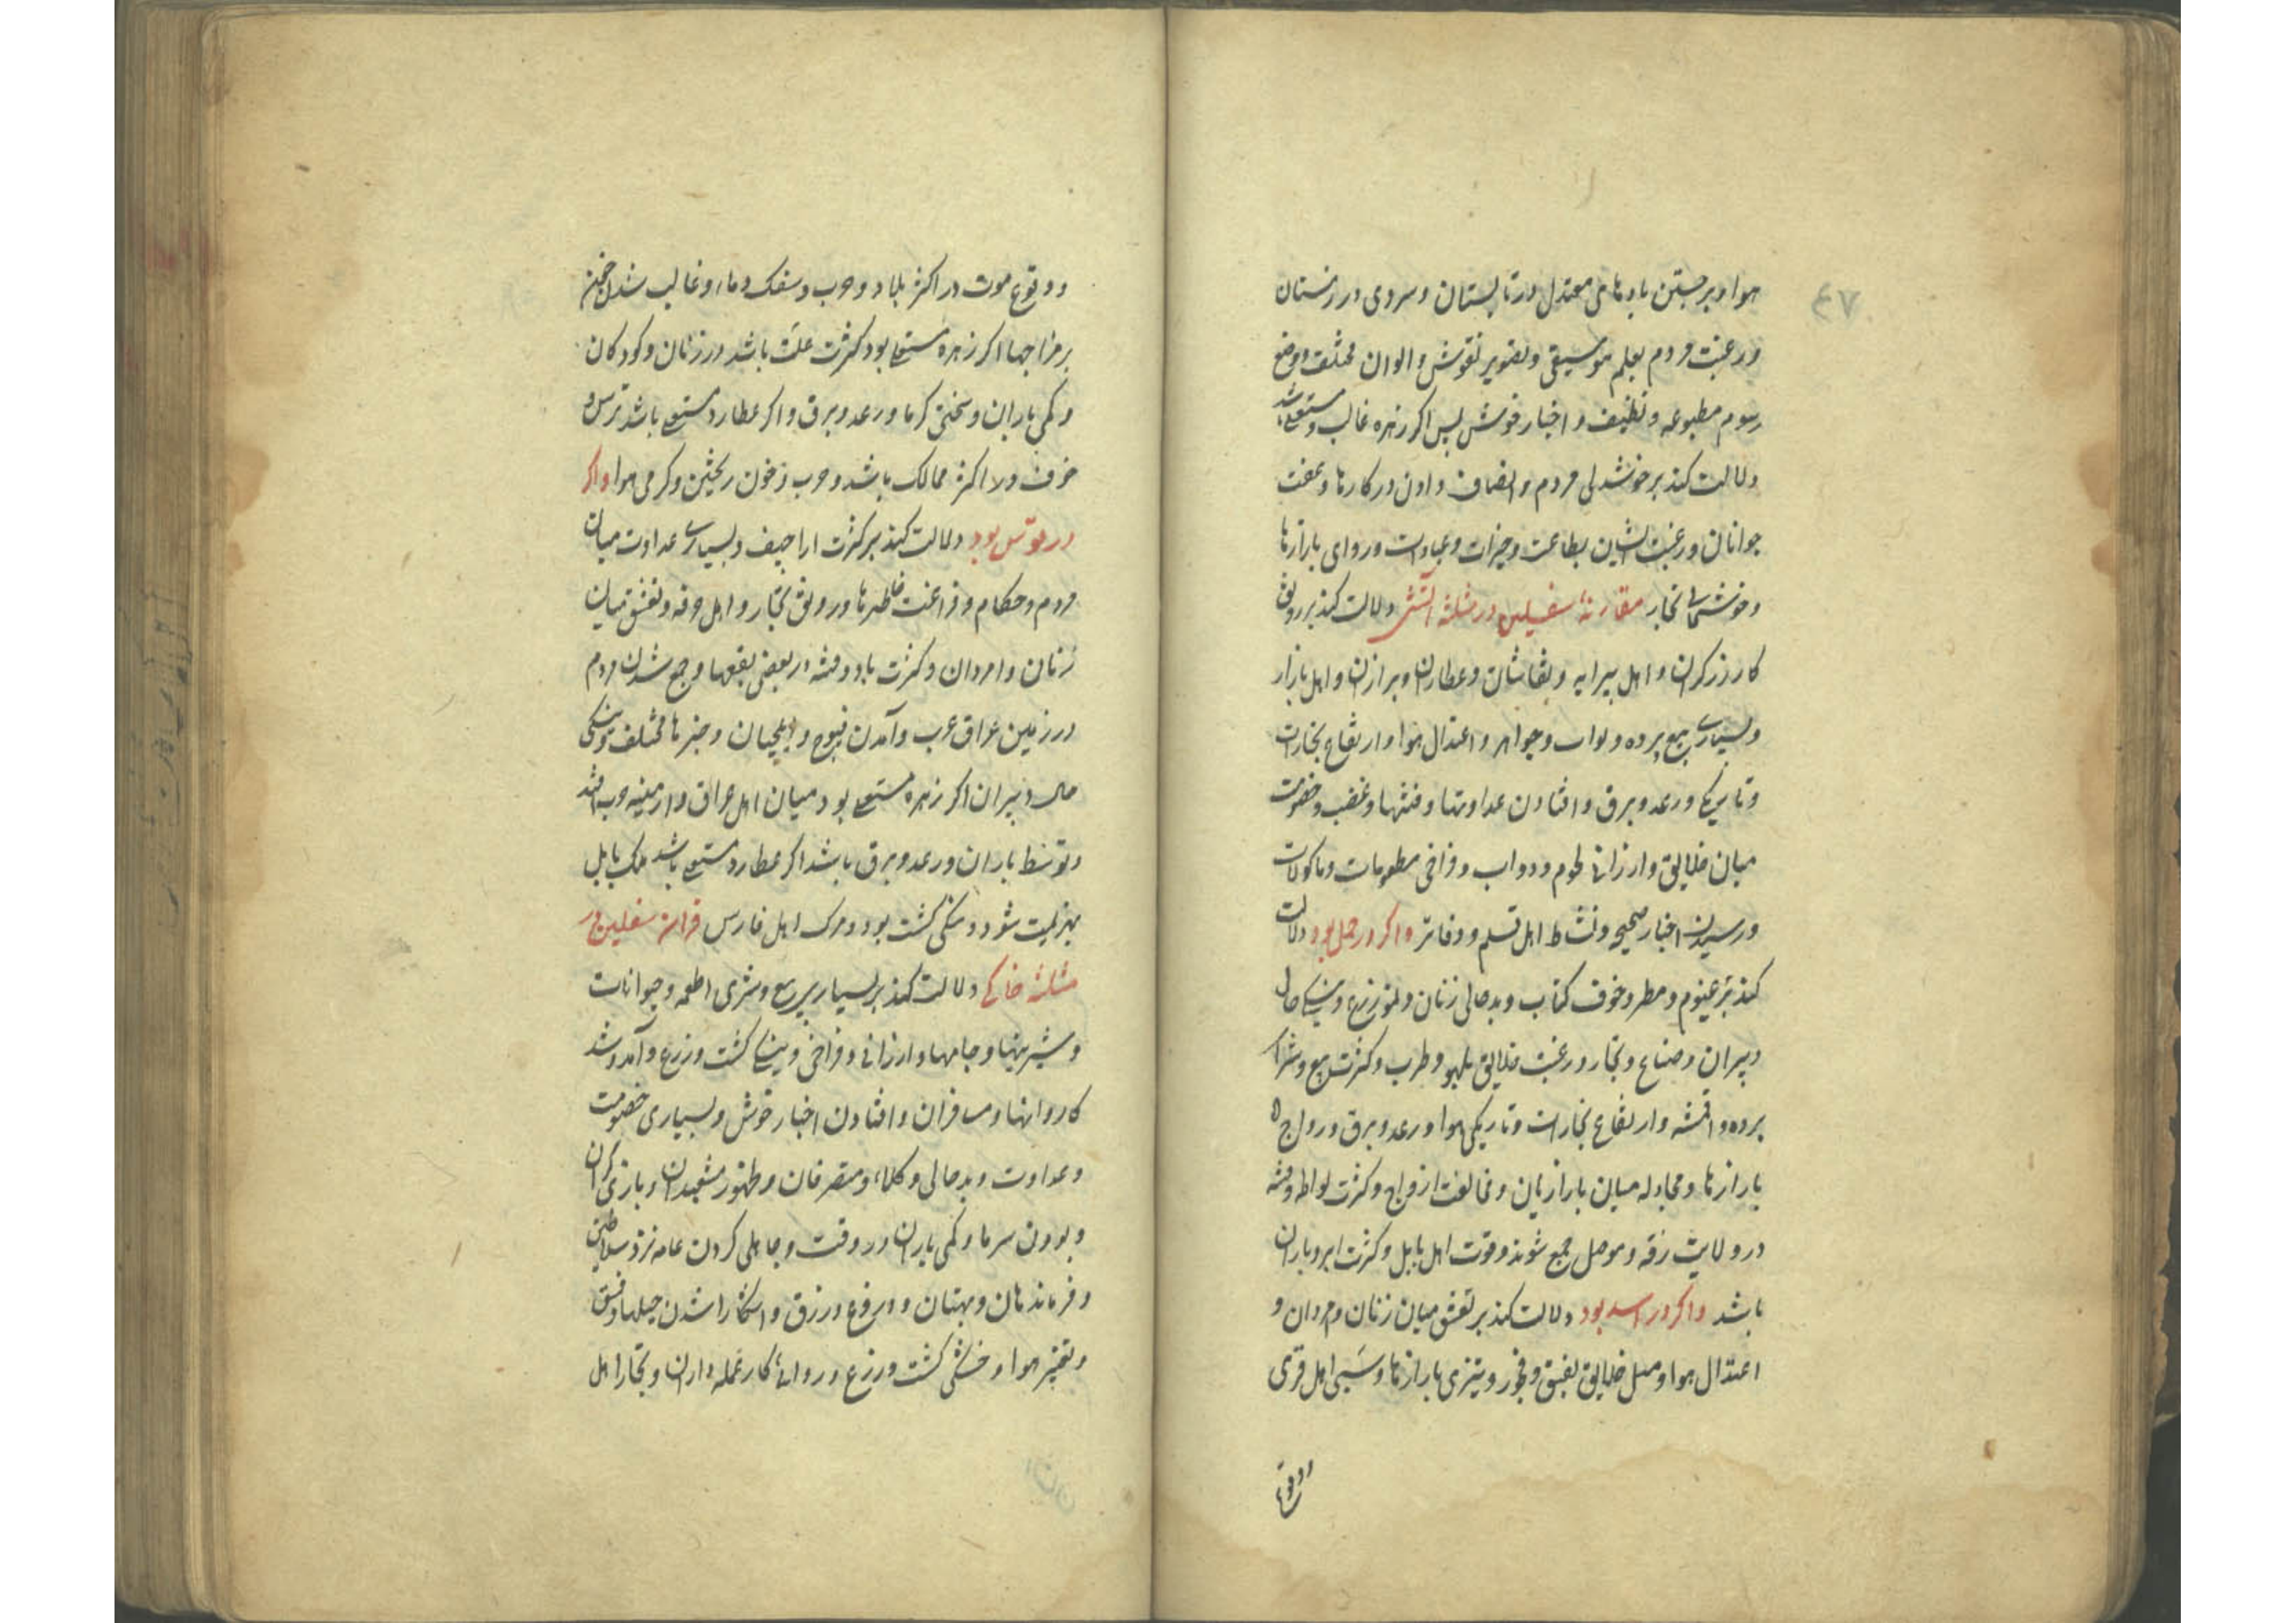 ۴۷
هوا و برجستن بادهای معتدل در تابستان و سردی در زمستان
و رغبت مردم بعلم موسیقی و تصویر نقوش و الوان مختلف و وضع
رسوم مطبوعه و نظیف و اخبار خوش پس اکر زهره غالب و مستعلی باشد
دلالت کند بر خوشدلی مردم و انصاف دادن در کارها و عفت
جوانان و رغبت ایشان بطاعت و خیرات و عبادات و روای بازارها
و خوشحالی تجار مقارنهٔ سفلیین در مثلثهٔ آتشی دلالت کند بر رونق
کار زرکران و اهل پیرایه و نقاشان و عطاران و بزازان و اهل بازار
و بسیاری بیع برده و دواب و جواهر و اعتدال هوا و ارتفاع بخارات
و تاریکی و رعد و برق و افتادن عداوتها و فتنها و غضب و خصومت
میان خلایق و ارزانی لحوم و دواب و فراخی مطعومات و ماکولات
و رسیدن اخبار صحیح و نشاط اهل قلم و دفاتر و اکر در حمل بود دلالت
کند بر غیوم و مطر و خوف کتاب و بدحالی زنان و نمو زرع و نیکی حال
دبیران و صناع و تجار و رغبت خلایق بلهو و طرب و کثرت بیع و شرا
برده و اقمشه و ارتفاع بخارات و تاریکی هوا و رعد و برق و رواج
بازارها و مجادله میان بازاریان و مخالفت ازواج و کثرت لواطه و فتنه
در ولایت رقه و موصل جمع شوند و قوت اهل بابل و کثرت ابر و باران
باشد و اکر در اسد بود دلالت کند بر تعشق میان زنان و مردان و
اعتدال هوا و میل خلایق بفسق و فجور و تیزی بازارها و سبی اهل قری
و وقوع
و وقوع موت در اکثر بلاد و حرب و سفک دماء و غالب شدن خون
بر مزاجها اکر زهره مستعلی بود کثرت علت باشد در زنان و کودکان
و کمی باران و سختی کرما و رعد و برق و اکر عطارد مستعلی باشد ترس و
خوف در اکثر ممالک باشد و حرب و خون ریختن و کرمی هوا و اکر
در قوس بود دلالت کند بر کثرت اراجیف و بسیاری عداوت میان
مردم و حکام و فراغت خاطرها و رونق تجار و اهل حرفه و تعشق میان
زنان و امردان و کثرت باد و فتنه در بعضی بقعها و جمع شدن مردم
در زمین عراق عرب و آمدن فیوج و ایلچیان و خبرها مختلف و نیکی
حال دبیران اکر زهره مستعلی بود میان اهل عراق و ارمینیه حرب افتد
و توسط باران و رعد و برق باشد اکر عطارد مستعلی باشد ملک بابل
بهزیمت شود و نیکی کشت بود و مرک اهل فارس قران سفلیین در
مثلثه خاکی دلالت کند بر بسیاری بیع و شری اطعمه و حیوانات
و شیرینها و جامها و ارزانی و فراخی و نیکی کشت و زرع و آمد و شد
کاروانها و مسافران و افتادن اخبار خوش و بسیاری خصومت
و عداوت و بدحالی وکلاء و متصرفان و ظهور مشعبدان و بازی کران
و بودن سرما و کمی باران در وقت و جاهلی کردن عامه نزد سلاطین
و فرماندهان و بهتان و دروغ و زرق و آشکارا شدن حیلها و فسق
و تغیر هوا و خشکی کشت و زرع و روائی کار غله داران و تجار اهل